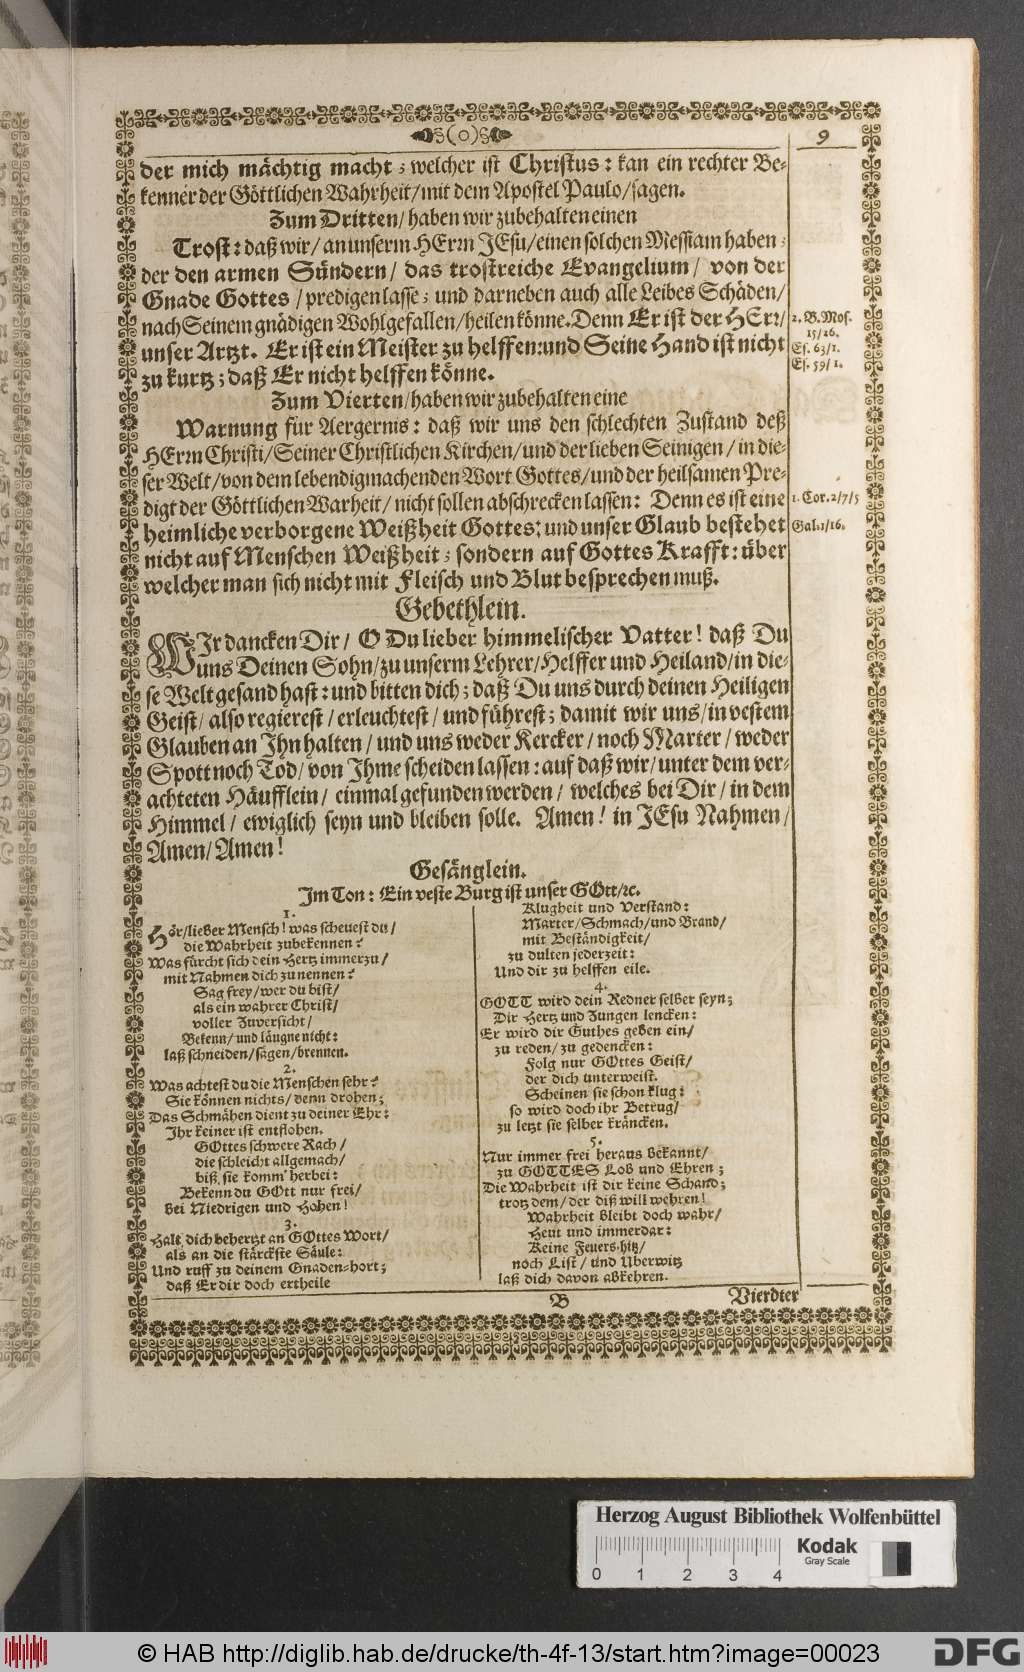 (o) 9
der mich mächtig macht; welcher ist Christus: kan ein rechter Be-
kenner der Göttlichen Wahrheit/mit dem Apostel Paulo/sagen.
Zum Dritten/haben wir zubehalten einen
Trost: daß wir/an unserm HErrn JEsu/einen solchen Messiam haben;
der den armen Sündern/ das trostreiche Evangelium/ von der
Gnade Gottes /predigen lasse; und darneben auch alle Leibes Schäden/
nach Seinem gnädigen Wohlgefallen/heilen könne. Denn Er ist der HErr/
unser Artzt. Er ist ein Meister zu helffen: und Seine Hand ist nicht
zu kurtz; daß Er nicht helffen könne.
2. B. Mos.
15/26.
Es. 63/1.
Es. 59/1.
Zum Vierten/haben wir zubehalten eine
Warnung für Aergernis: daß wir uns den schlechten Zustand deß
HErrn Christi/Seiner Christlichen Kirchen/und der lieben Seinigen/in die-
ser Welt/von dem lebendigmachenden Wort Gottes/und der heilsamen Pre-
digt der Göttlichen Warheit/nicht sollen abschrecken lassen: Denn es ist eine
heimliche verborgene Weißheit Gottes; und unser Glaub bestehet
nicht auf Menschen Weißheit; sondern auf Gottes Krafft: über
welcher man sich nicht mit Fleisch und Blut besprechen muß.
1. Cor. 2/7/5
Gal. 1/16.
Gebethlein.
WJr dancken Dir/ O Du lieber himmelischer Vatter! daß Du
uns Deinen Sohn/zu unserm Lehrer/Helffer und Heiland/in die-
se Welt gesand hast: und bitten dich; daß Du uns durch deinen Heiligen
Geist/ also regierest/erleuchtest/und führest; damit wir uns/in vestem
Glauben an Jhn halten/und uns weder Kercker/noch Marter/weder
Spott noch Tod/von Jhme scheiden lassen: auf daß wir/unter dem ver-
achteten Häufflein/ einmal gefunden werden/ welches bei Dir/in dem
Himmel/ ewiglich seyn und bleiben solle. Amen! in JEsu Nahmen/
Amen/Amen!
Gesänglein.
Jm Ton: Ein veste Burg ist unser GOtt/ec.
1.
Hör/lieber Mensch! was scheuest du/
die Wahrheit zubekennen?
Was fürcht sich dein Hertz immerzu/
mit Nahmen dich zu nennen?
Sag frey/wer du bist/
als ein wahrer Christ/
voller Zuversicht/
Bekenn/und läugne nicht:
laß schneiden/sägen/brennen.
2.
Was achtest du die Menschen sehr?
Sie können nichts/denn drohen;
Das Schmähen dient zu deiner Ehr:
Jhr keiner ist entflohen.
GOttes schwere Rach/
die schleicht allgemach/
biß sie komm' herbei:
Bekenn du GOtt nur frei/
bei Niedrigen und Hohen!
3.
Halt dich behertzt an GOttes Wort/
als an die stärckste Säule:
Und ruff zu deinem Gnaden-hort;
daß Er dir doch ertheile
Klugheit und Verstand:
Marter/Schmach/und Brand/
mit Beständigkeit/
zu dulten jederzeit:
Und dir zu helffen eile.
4.
GOTT wird dein Redner selber seyn;
Dir Hertz und Zungen lencken:
Er wird dir Guthes geben ein/
zu reden/zu gedencken:
Folg nur GOttes Geist/
der dich unterweist.
Scheinen sie schon klug:
so wird doch ihr Betrug/
zu letzt sie selber kräncken.
5.
Nur immer frei heraus bekannt/
zu GOTTES Lob und Ehren;
Die Wahrheit ist dir keine Schand;
trotz dem/der diß will wehren!
Wahrheit bleibt doch wahr/
Heut und immerdar:
Keine Feuers-hitz/
noch List/und Uberwitz
laß dich davon abkehren.
B Vierdter
Herzog August Bibliothek Wolfenbüttel
Kodak
Gray Scale
0 1 2 3 4
© HAB http://diglib.hab.de/drucke/th-4f-13/start.htm?image=00023
DFG